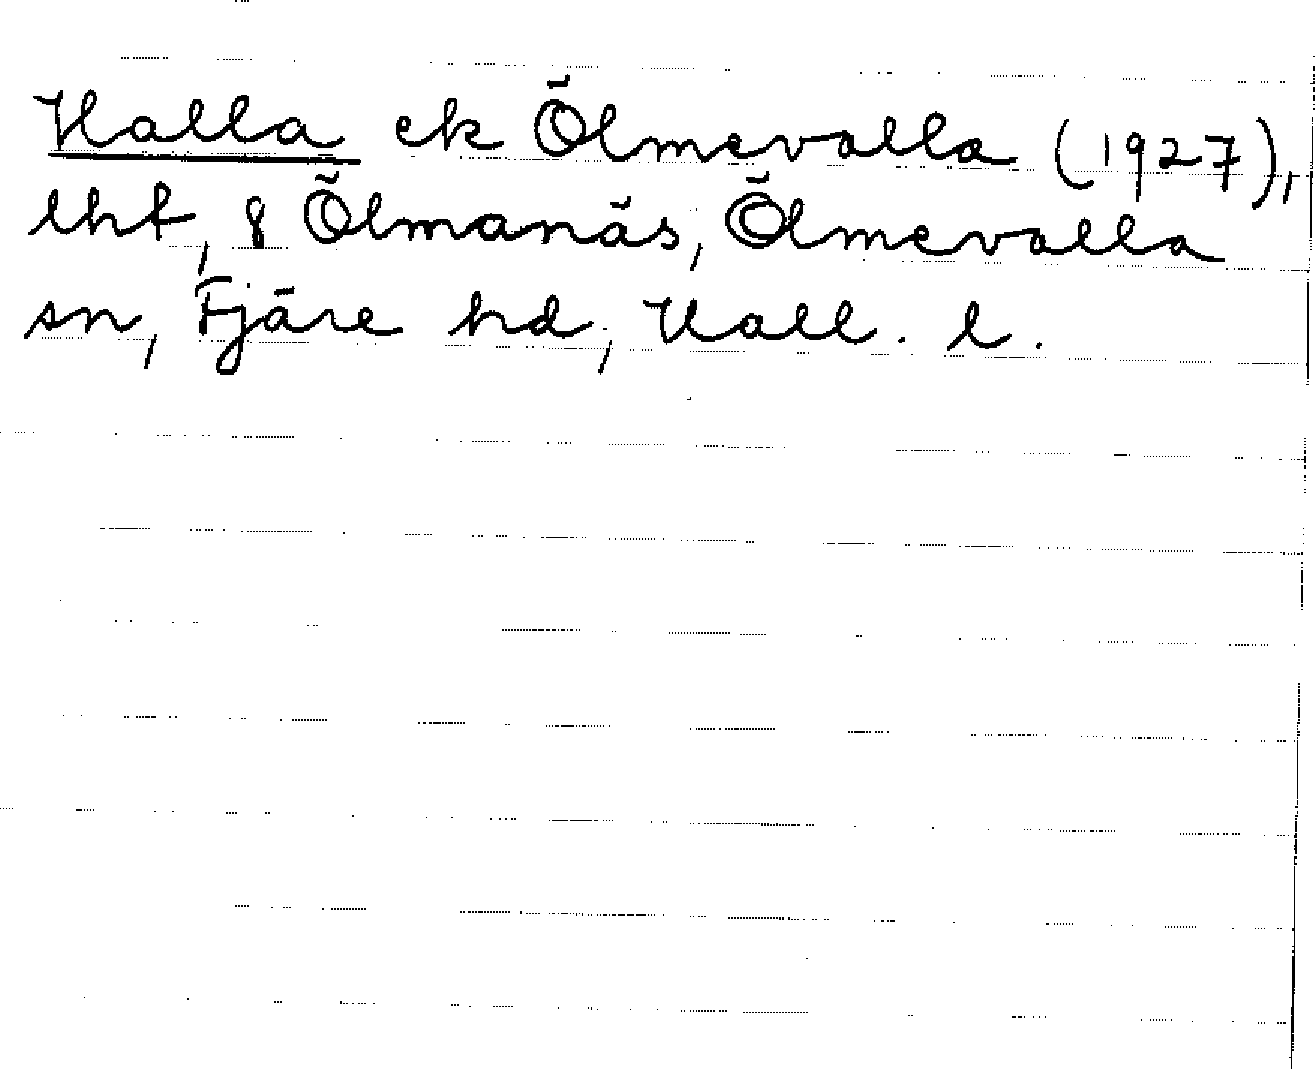 Halla ek Ölmevalla (1927),
lht, 8 Ölmanäs, Ölmevalla
sn, Fjäre hd, Hall. l.